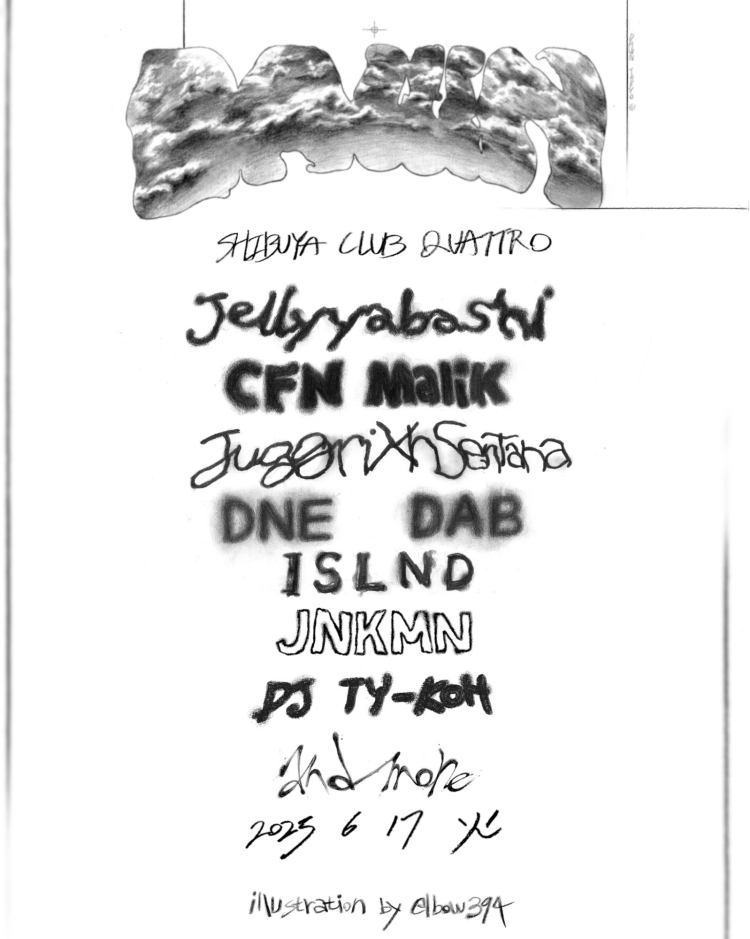 SHIBUYA CLUB QUATTRO
Jellyyabashi
CFN Malik
Juggrixh Sentana
DNE DAB
ISLND
JNKMN
DJ TY-KOH
and more
2025 6 17 火
illustration by elbow394